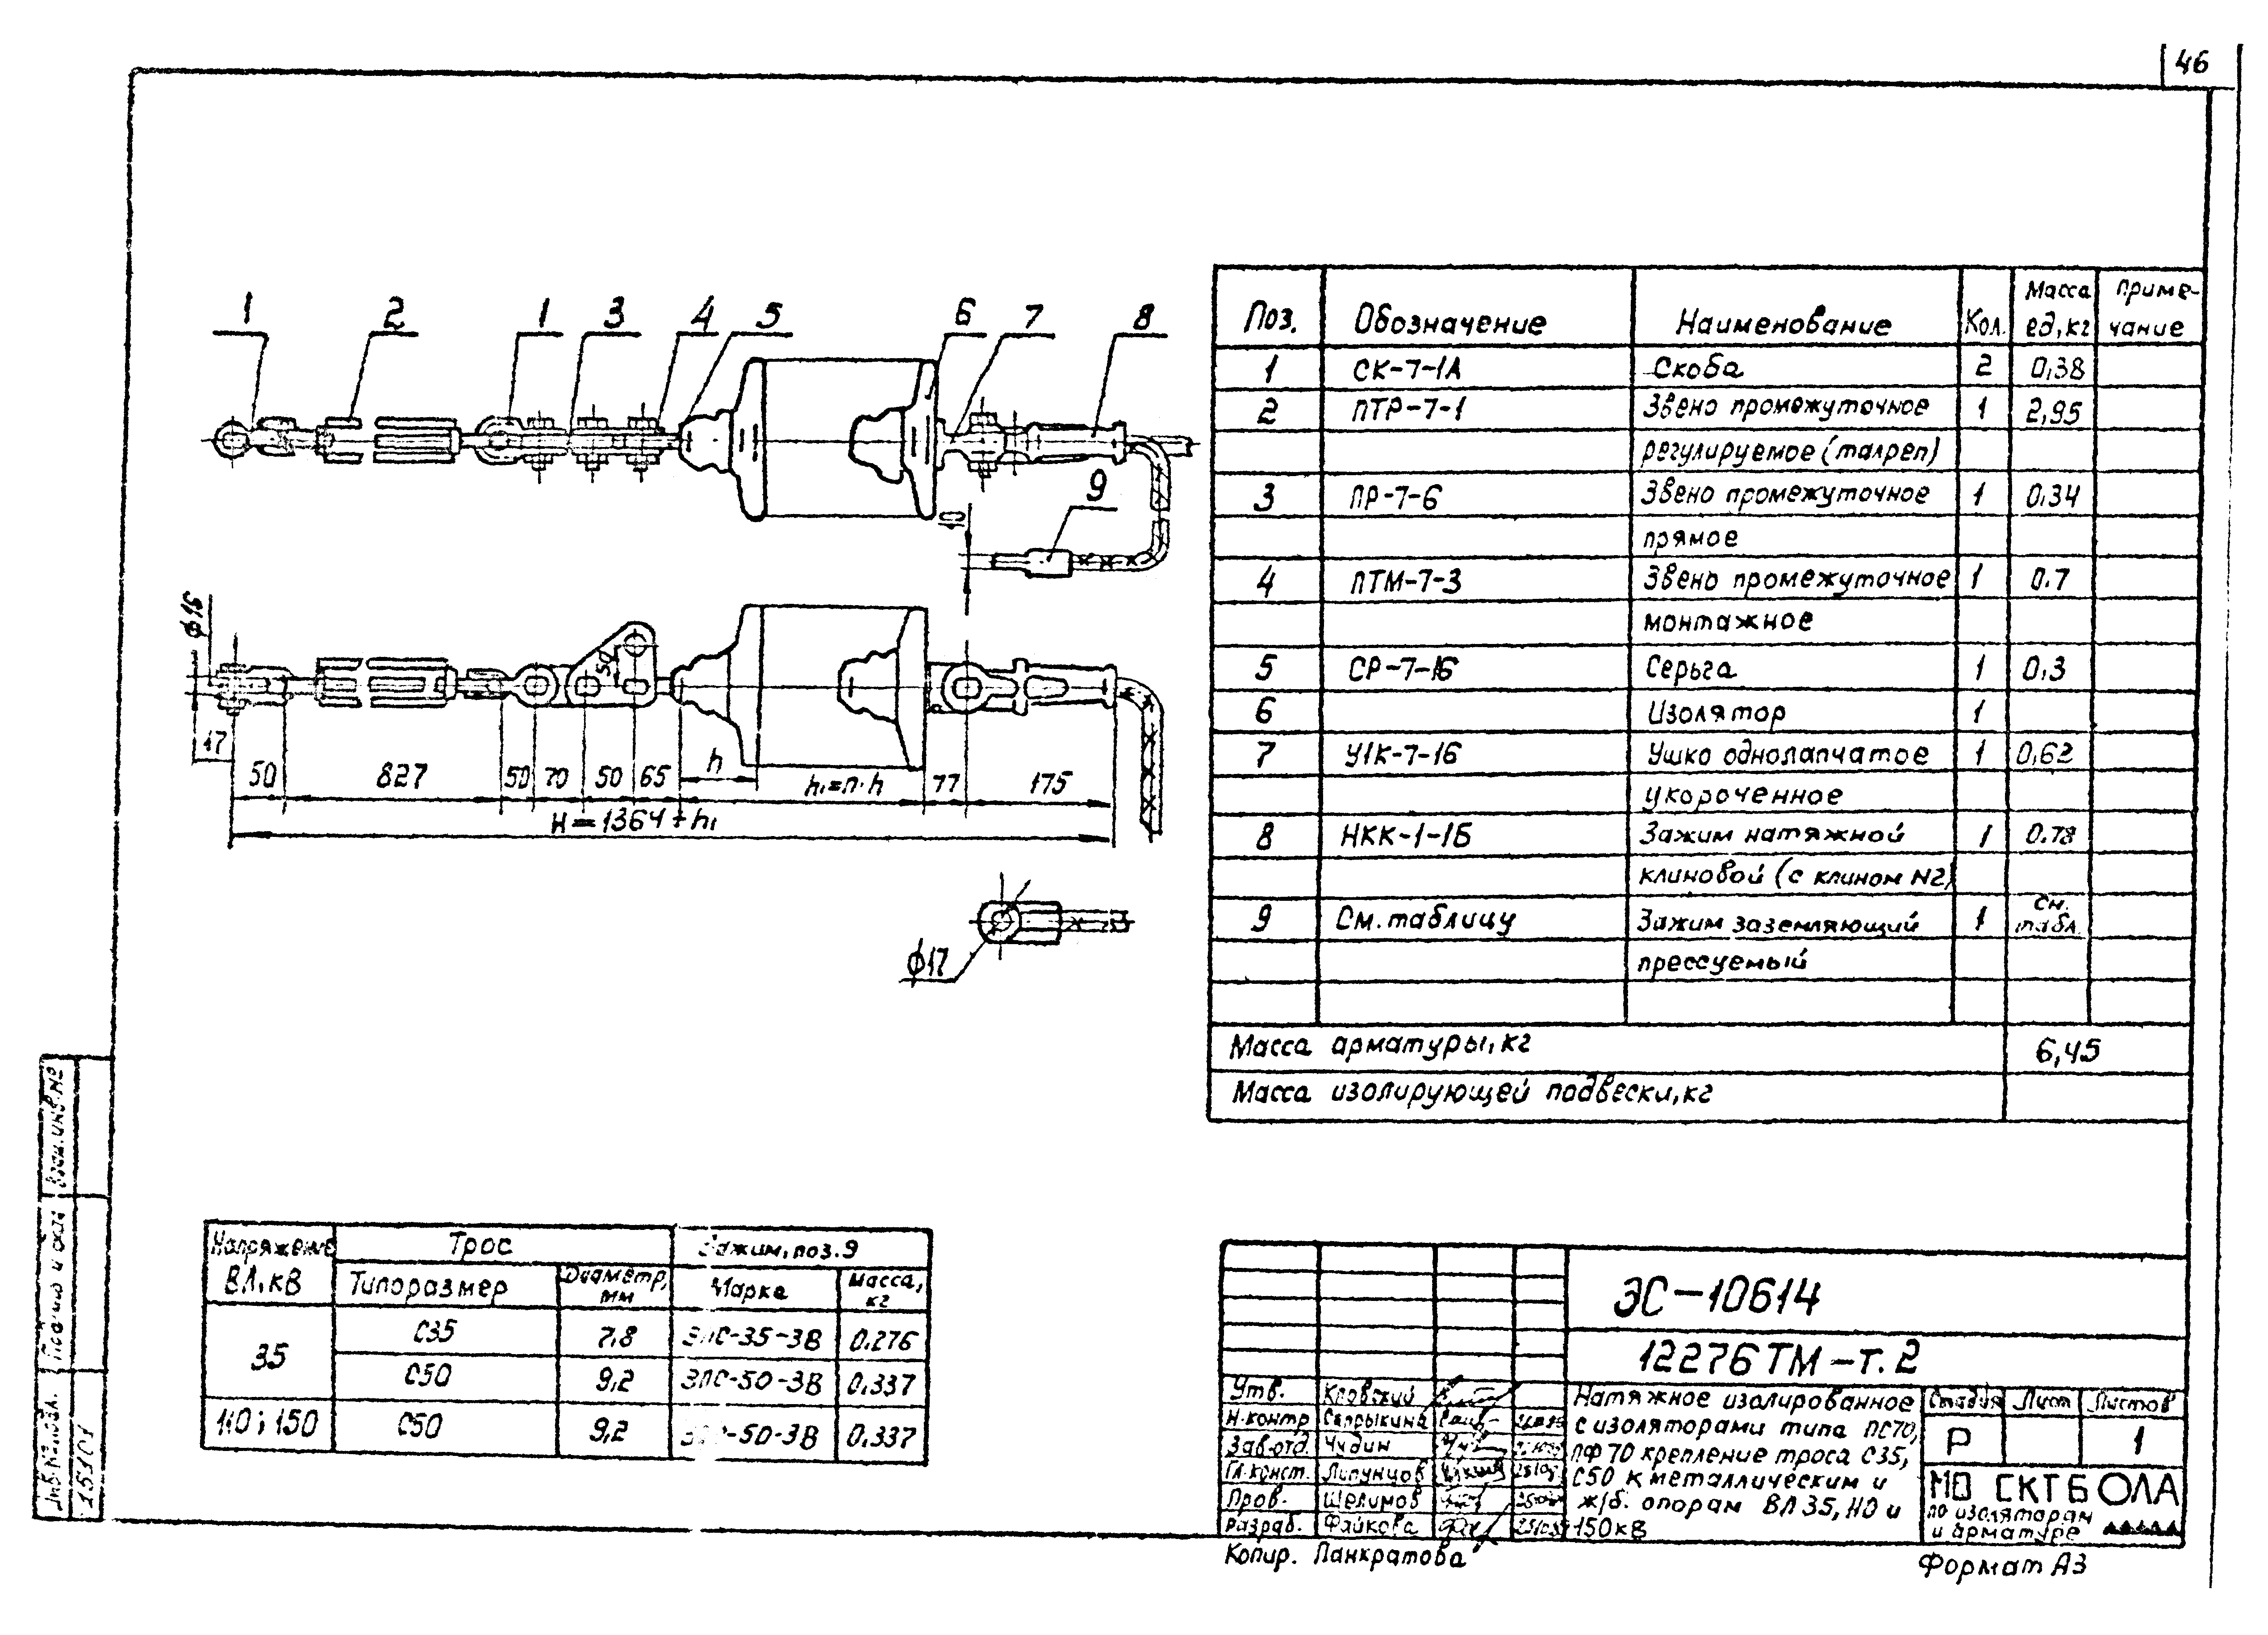 46
1 2 1 3 4 5 6 7 8
9
10
ф16
17
50 827 50 70 50 65 h h₁=n·h 77 175
50
H=1364+h₁
ф17
Поз. Обозначение Наименование Кол. Масса ед,кг Приме-чание
1 СК-7-1А Скоба 2 0,38
2 ПТР-7-1 Звено промежуточное 1 2,95
регулируемое (талреп)
3 ПР-7-6 Звено промежуточное 1 0,34
прямое
4 ПТМ-7-3 Звено промежуточное 1 0.7
монтажное
5 СР-7-16 Серьга 1 0,3
6 Изолятор 1
7 У1К-7-16 Ушко однолапчатое 1 0,62
укороченное
8 НКК-1-1Б Зажим натяжной 1 0.78
клиновой (с клином N2)
9 См. таблицу Зажим заземляющий 1 См. табл.
прессуемый
Масса арматуры,кг 6,45
Масса изолирующей подвески,кг
Напряжение ВЛ,кВ Трос Зажим, поз.9
Типоразмер Диаметр, мм Марка Масса, кг
35 С35 7,8 ЗПС-35-3В 0,276
С50 9,2 ЗПС-50-3В 0,337
110; 150 С50 9,2 ЗПС-50-3В 0,337
ЭС-10614
12276ТМ-т.2
Утв. Кловский
Н.контр Скрыкина
Зав.отд. Чудин
Гл.конст. Липунцов
Пров. Шелимов
Разраб. Файкова
Натяжное изолированное
с изоляторами типа ПС70,
ПФ70 крепление троса С35,
С50 к металлическим и
ж/б. опорам ВЛ 35, 110 и
150кВ
Стадия Лист Листов
Р 1
МО СКТБ ОЛА
по изоляторам
и арматуре
Копир. Панкратова
Формат А3
Взам.инв.№
Подпись и дата
Инв.№ подл.